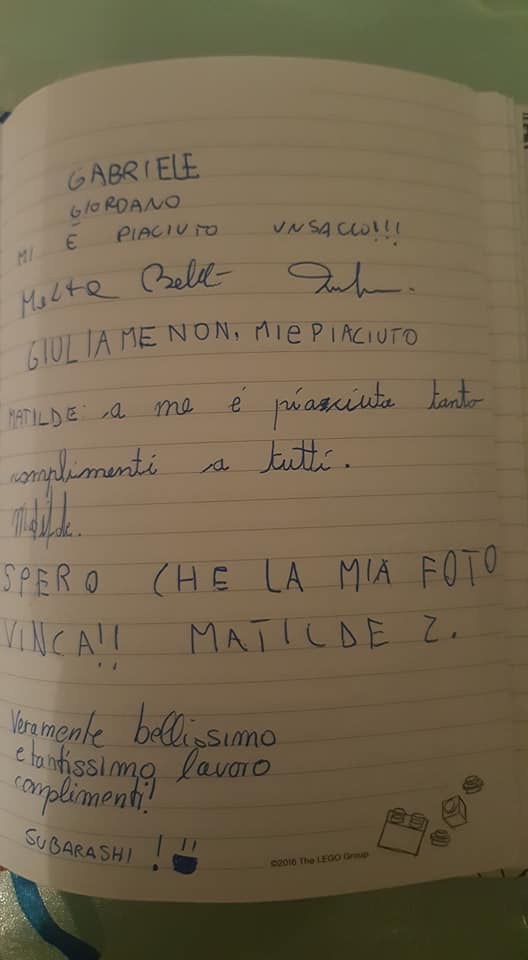 GABRIELE
GIORDANO
MI È PIACIUTO UN SACCO!!!
GIULIA MENON, MI e PIACIUTO
MATILDE: a me é piasciuta tanto
complimenti a tutti.
Matilde.
SPERO CHE LA MIA FOTO
VINCA!! MATILDE Z.
Veramente bellissimo
e tantissimo lavoro
complimenti!
SUBARASHI !
©2016 The LEGO Group